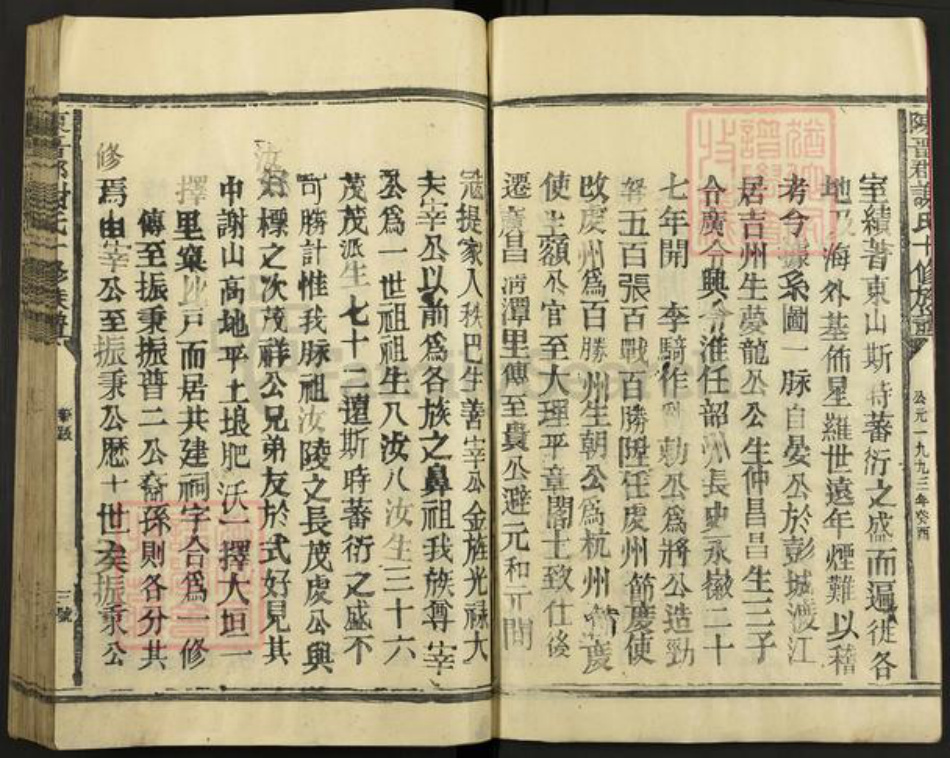 陳晉郡謝氏十修族譜
公元一九九三年癸酉
室績著東山斯時蕃衍之盛而遍徙各
地及海外基佈星羅世遠年煙難以稽
考今據系圖一脉自晏公於彭城渡江
居吉州生夢龍公公生仲昌昌生三子
令廣令興令淮任韶州長史永徽二十
七年開 李騎作 勅公爲將公造勁
弩五百張百戰百勝陞任虔州節度使
改虔州爲百勝州生朝公爲杭州節度
使生額公官至大理平章閣士致仕後
遷廣昌清潭里傳至貴公避元和兀間
寇提家入秩巴生善宰公金旌光祿大
夫宰公以前爲各族之鼻祖我族尊宰
公爲一世祖祖生八汝八汝生三十六
茂茂派生七十二還斯時蕃衍之盛不
可勝計惟我脉祖汝陵之長茂慶公與
汝好標之次茂祥公兄弟友於式好見其
中謝山高地平土埌肥沃一擇大坦一
擇里築比戶而居共建祠字合爲一修
傳至振秉振普二公裔孫則各分共
修焉由宰公至振秉公歷十世矣振秉公
序跋
三號